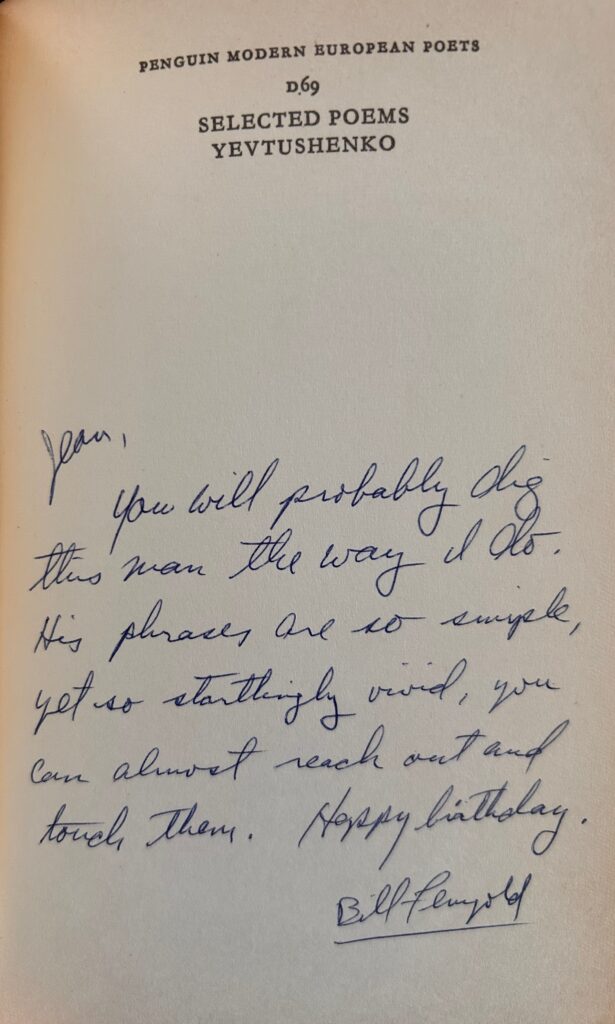 PENGUIN MODERN EUROPEAN POETS
D69
SELECTED POEMS
YEVTUSHENKO
Jean,
You will probably dig
this man the way I do.
His phrases are so simple,
yet so startlingly vivid, you
can almost reach out and
touch them. Happy birthday.
Bill